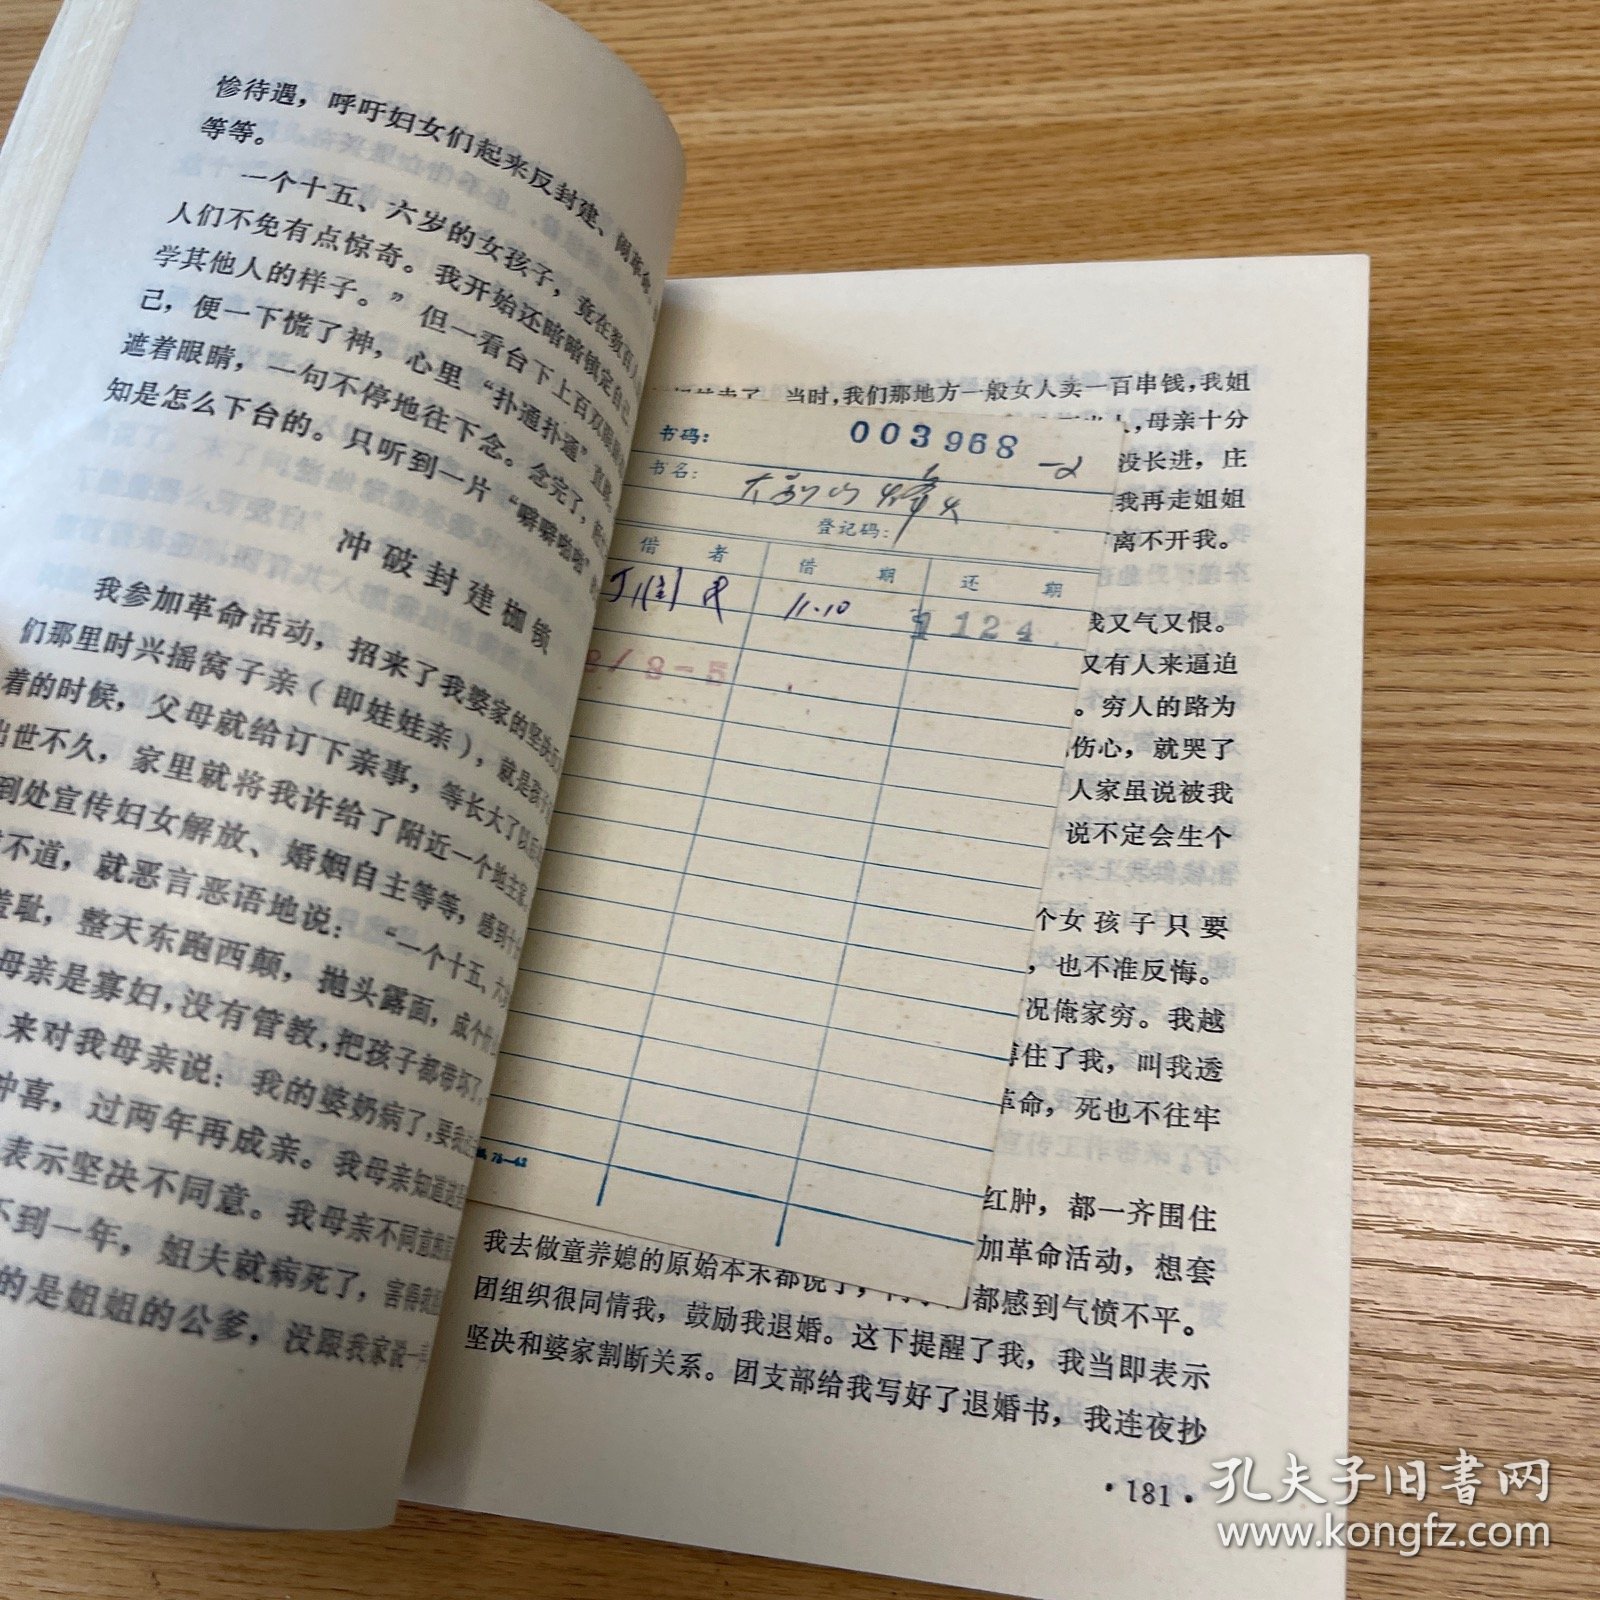 惨待遇，呼吁妇女们起来反封建、闹革命，
等等。
一个十五、六岁的女孩子，竟在数百人
人们不免有点惊奇。我开始还暗暗镇定自己，
学其他人的样子。”但一看台下上百双眼睛
己，便一下慌了神，心里“扑通扑通”直跳
遮着眼睛，一句不停地往下念。念完了，
知是怎么下台的。只听到一片“噼噼啪啪”
冲破封建枷锁
我参加革命活动，招来了我婆家的坚决反
们那里时兴摇窝子亲（即娃娃亲），就是孩子
着的时候，父母就给订下亲事，等长大了以后
出世不久，家里就将我许给了附近一个地主家。
到处宣传妇女解放、婚姻自主等等，感到十分
不道，就恶言恶语地说：“一个十五、六岁
羞耻，整天东跑西颠，抛头露面，成个什么
母亲是寡妇，没有管教，把孩子都带坏了。
来对我母亲说：我的婆奶病了，要我
冲喜，过两年再成亲。我母亲知道这些
表示坚决不同意。我母亲不同意
不到一年，姐夫就病死了，害得我
的是姐姐的公爹，没跟我家说一
当时，我们那地方一般女人卖一百串钱，我姐
人，母亲十分
没长进，庄
我再走姐姐
离不开我。
我又气又恨。
又有人来逼迫
。穷人的路为
伤心，就哭了
人家虽说被我
说不定会生个
个女孩子只要
，也不准反悔。
况俺家穷。我越
缚住了我，叫我透
革命，死也不往牢
红肿，都一齐围住
加革命活动，想套
我去做童养媳的原始本末都说了，
都感到气愤不平。
团组织很同情我，鼓励我退婚。这下提醒了我，我当即表示
坚决和婆家割断关系。团支部给我写好了退婚书，我连夜抄
·181·
书码： 003968 -2
书名： 大别山烽火
登记码：
借者 借期 还期
11.10 1 124
8-5
73—42
孔夫子旧书网
www.kongfz.com